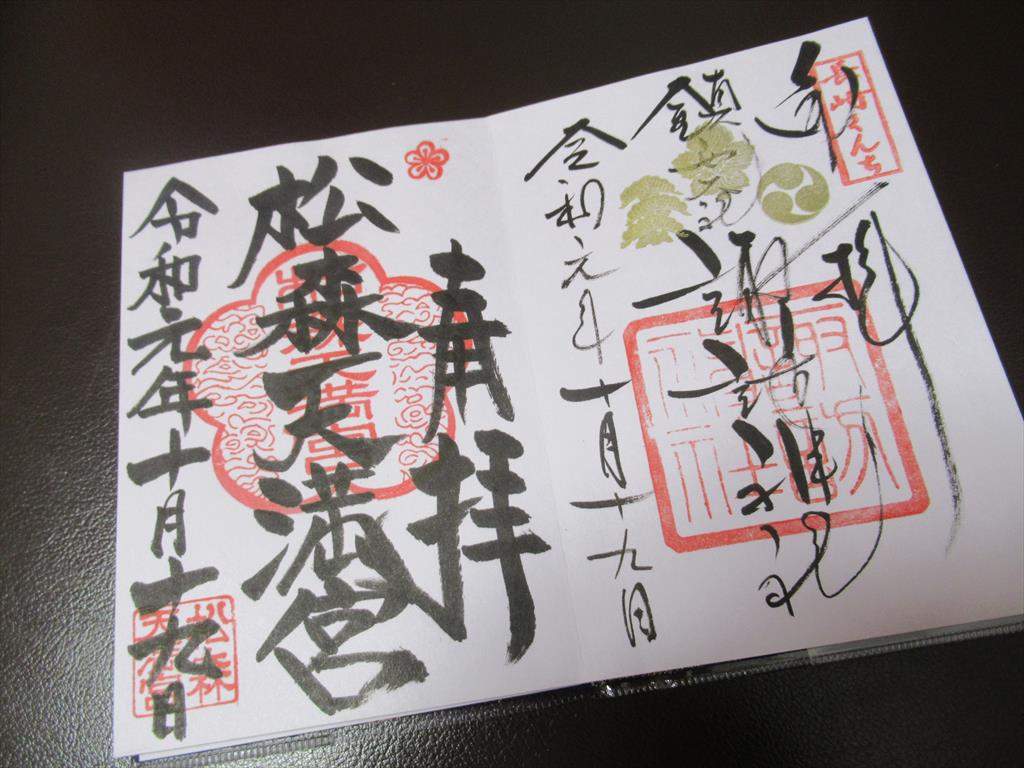 長崎くんち
奉拝
鎮西大社
諏訪神社
令和元年十月十九日
奉拝
松森天満宮
令和元年十月十九日
松森
天満宮